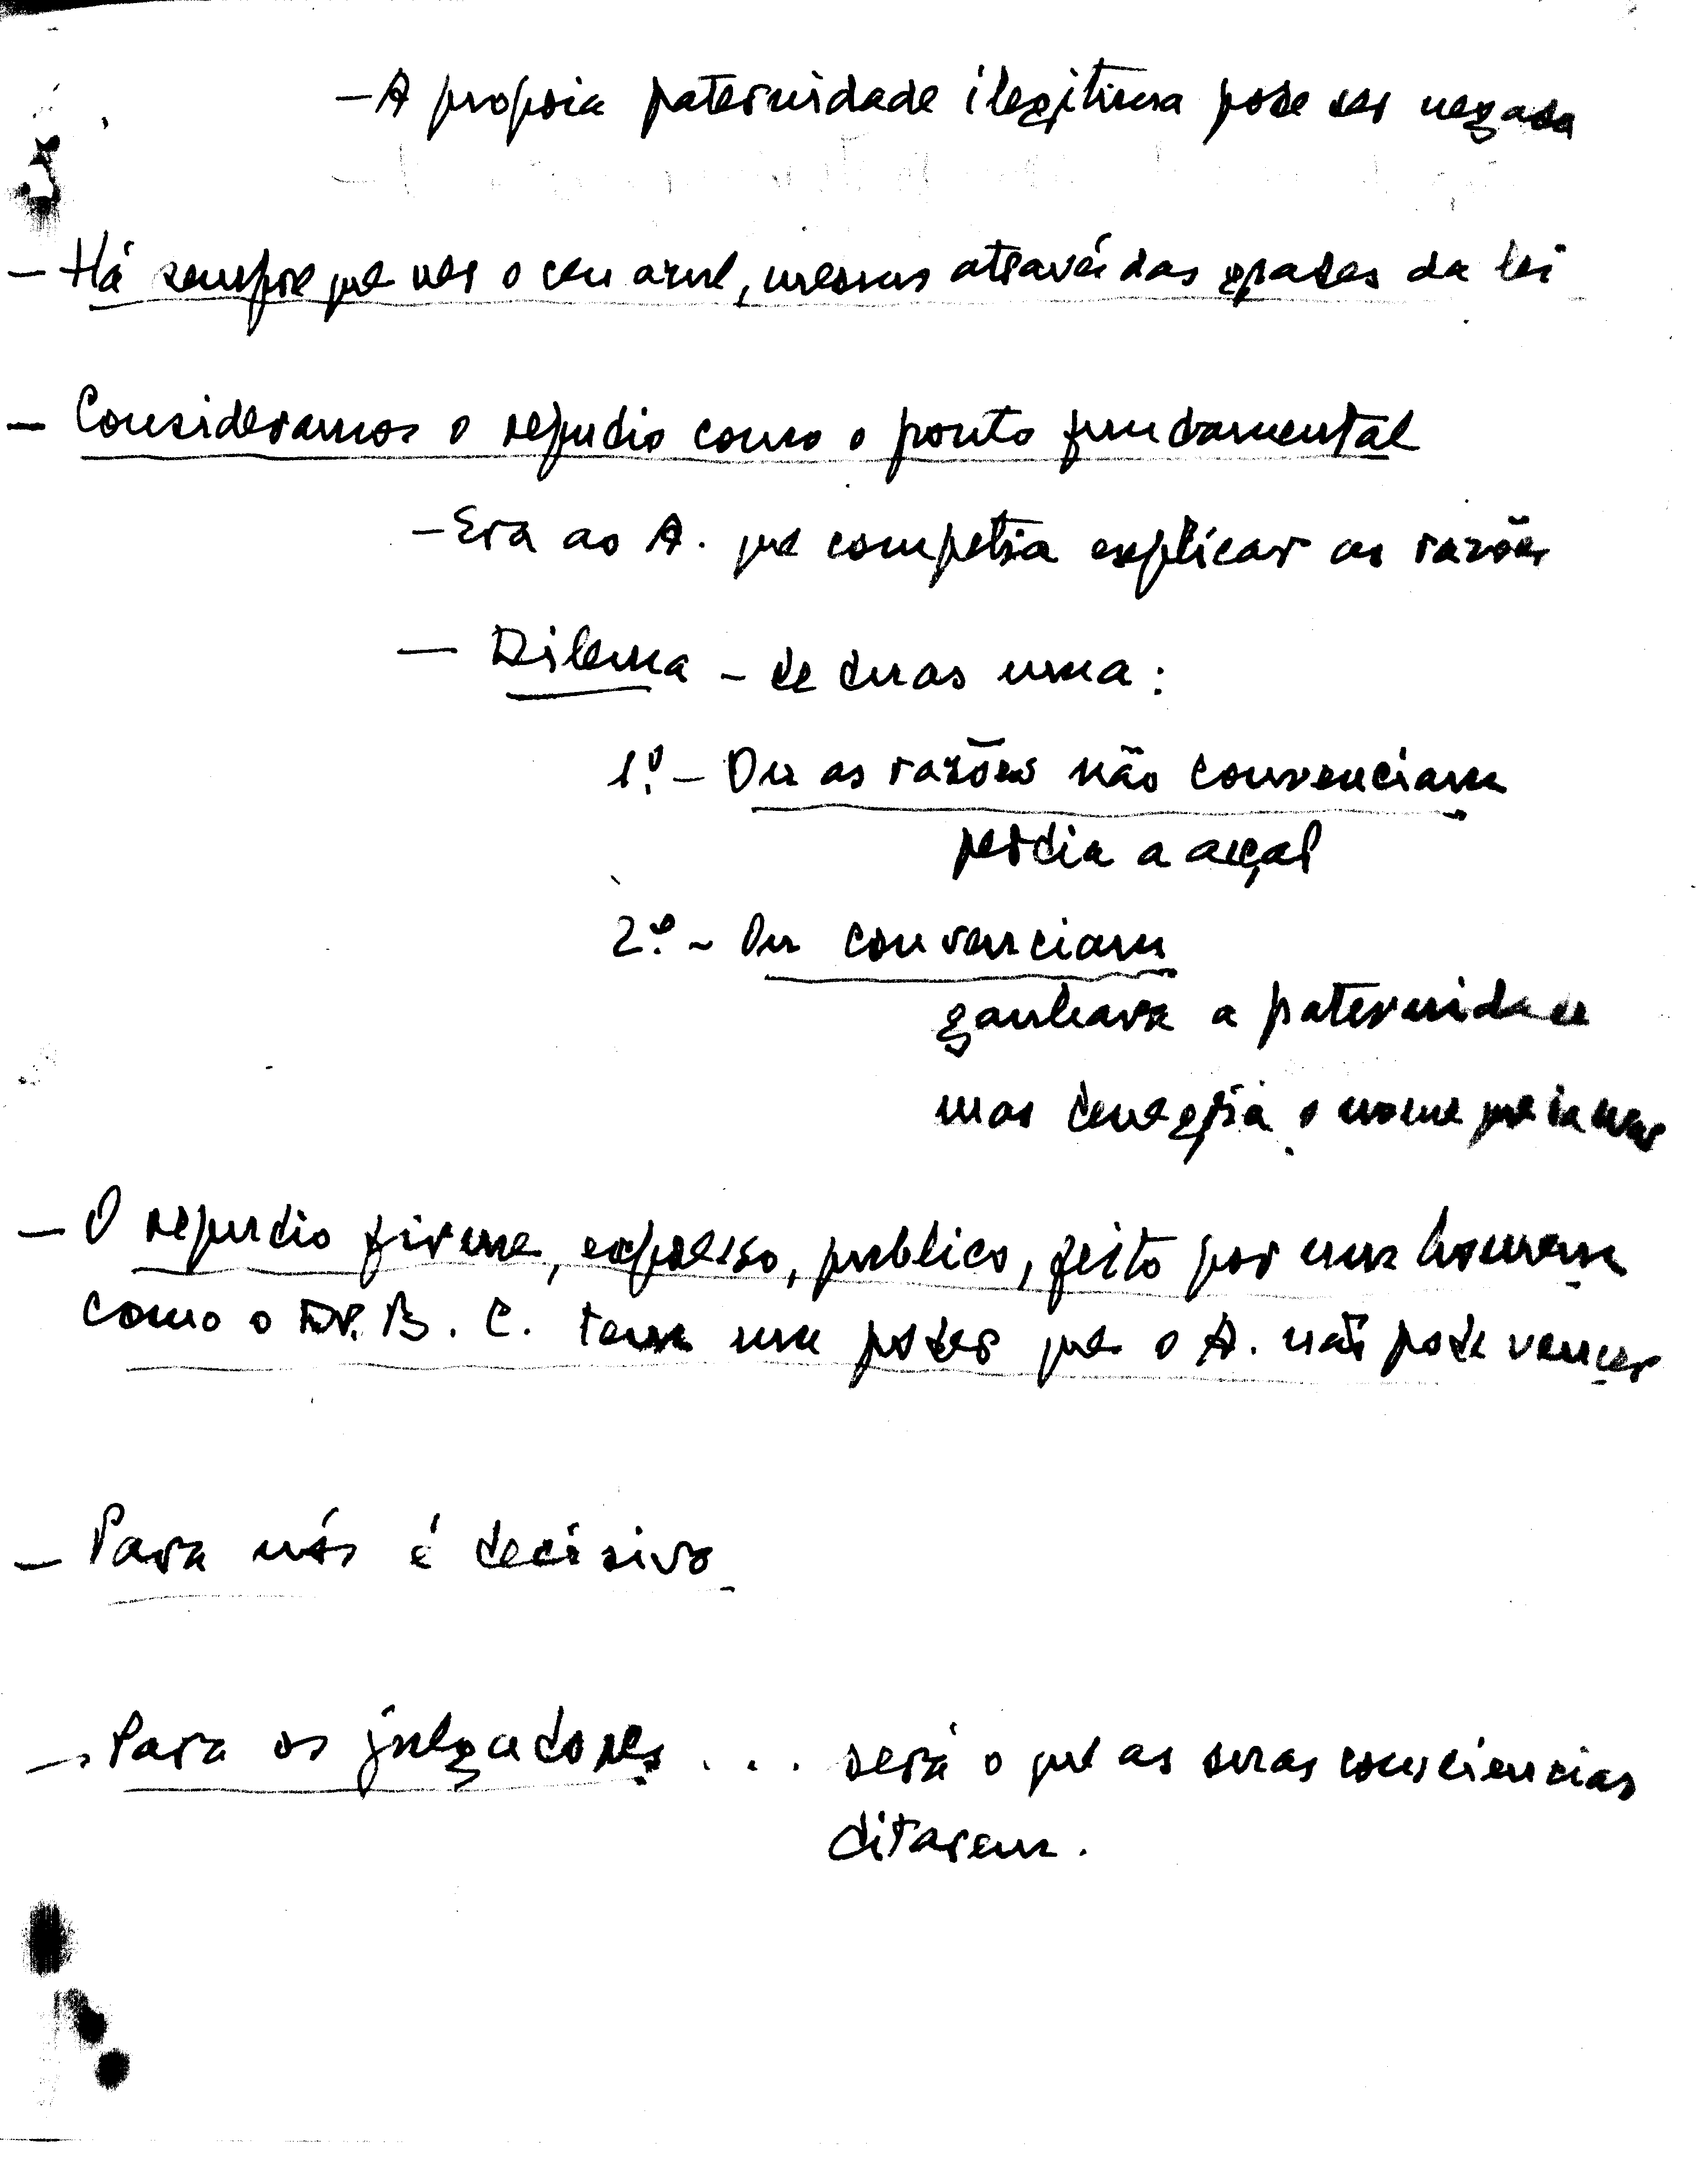 - A propria paternidade ilegitima pode ser negada
- Há sempre que ver o ceu azul, mesmo através das grades da lei
- Consideramos o repudio como o ponto fundamental
- Era ao A. que competia explicar as razões
- Dilema - de duas uma:
1º - Ou as razões não convenciam
perdia a acção
2º - Ou convenciam
ganhava a paternidade
mas denegria o nome que ia
- O repudio firme, expresso, publico, feito por um homem
como o Dr. B. C. tem um poder que o A. não pode vencer
- Para nós é decisivo
- Para os julgadores . . . será o que as suas consciencias
ditarem.